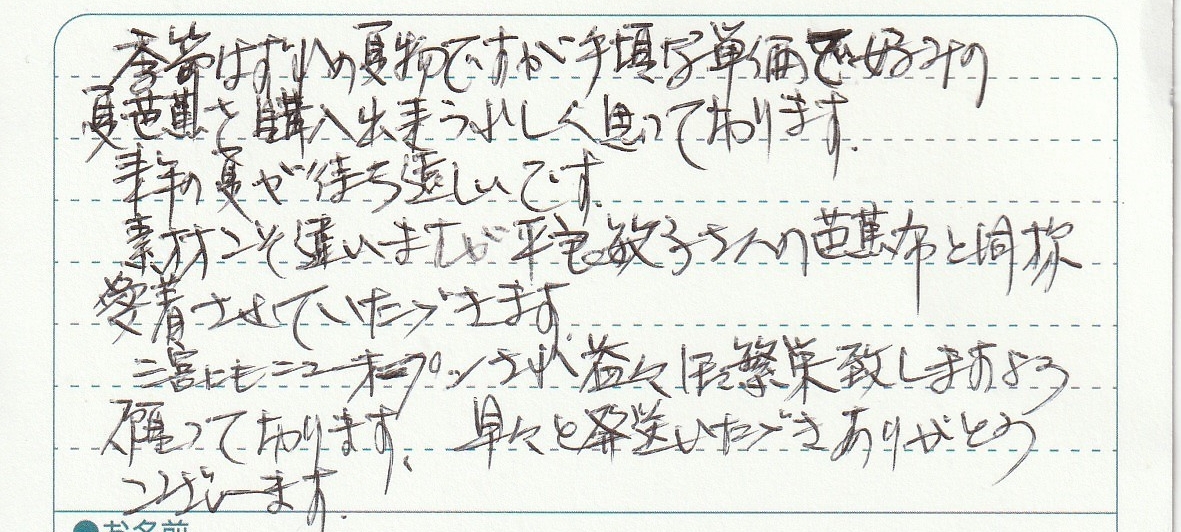 季節はずれの夏物ですが手頃な単価で好みの
夏芭蕉を購入出来うれしく思っております.
来年の夏が待ち遠しいです.
素材こそ違いますが平良敏子さんの芭蕉布と同様
愛着させていただきます.
三宮にもニューオープンされ益々ご繁栄致しますよう
願っております. 早々と発送いただきありがとう
ございます.
●お名前